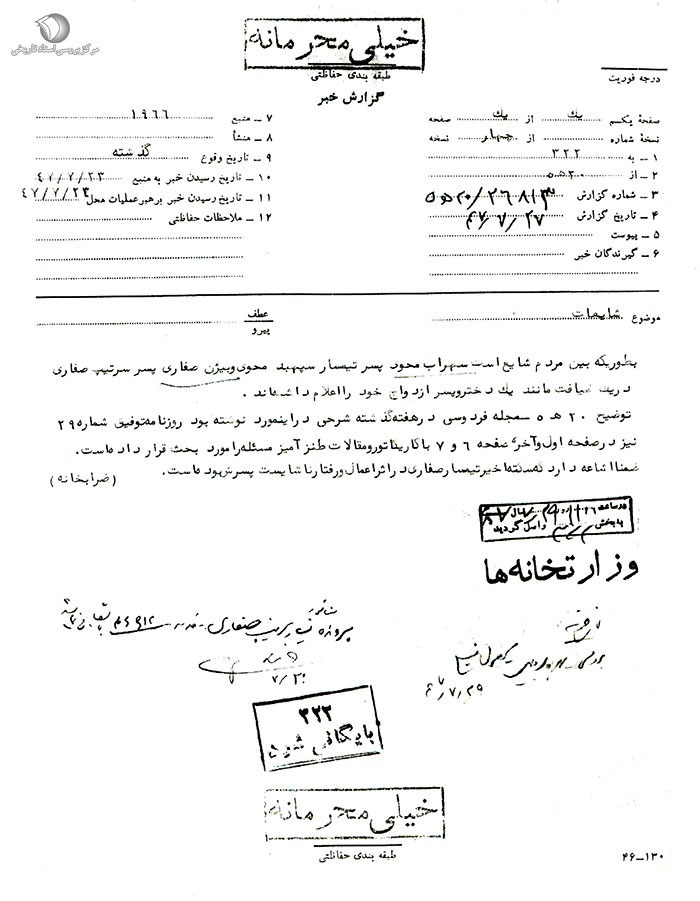 مرکز بررسی اسناد تاریخی
خیلی محرمانه
طبقه بندی حفاظتی
گزارش خبر
درجه فوریت
صفحه یکم یك از یك صفحه
نسخه شماره از چهار نسخه
۱ – به ۳۲۲
۲ – از ۲۰ ه ۵
۳ – شماره گزارش
۴ – تاریخ گزارش ۴۷/۷/۲۷
۵ – پیوست
۶ – گیرندگان خبر
۷ – منبع ۱۹۶۶
۸ – منشأ
۹ – تاریخ وقوع گذشته
۱۰ – تاریخ رسیدن خبر به منبع ۴۷/۷/۲۳
۱۱ – تاریخ رسیدن خبر برهبر عملیات محل ۴۷/۷/۲۴
۱۲ – ملاحظات حفاظتی
موضوع شایعات
عطف
پیرو
بطوریکه بین مردم شایع است سهراب محوی پسر تیسار سپهبد محوی وبیژن صفاری پسر سرتیپ صفاری
دریك ضیافت مانند یك دختروپسر ازدواج خود را اعلام داشته‌اند .
توضیح ۲۰ ه ۵ – مجله فردوسی درهفته گذشته شرحی دراینمورد نوشته بود روزنامه توفیق شماره ۲۹
نیز درصفحه اول وآخر و صفحه ۶ و ۷ با کاریکاتورومقالات طنز آمیز مسئله رامورد بحث قرار داده است.
ضمنا اشاعه دارد که سکته اخیر تیمسار صفاری در اثر اعمال ورفتار ناشایست پسرش بوده است. (ضرابخانه)
وزارتخانه‌ها
۴۷/۷/۲۹
۳۲۲
بایگانی شود
خیلی محرمانه
طبقه بندی حفاظتی
۴۶–۱۳۰